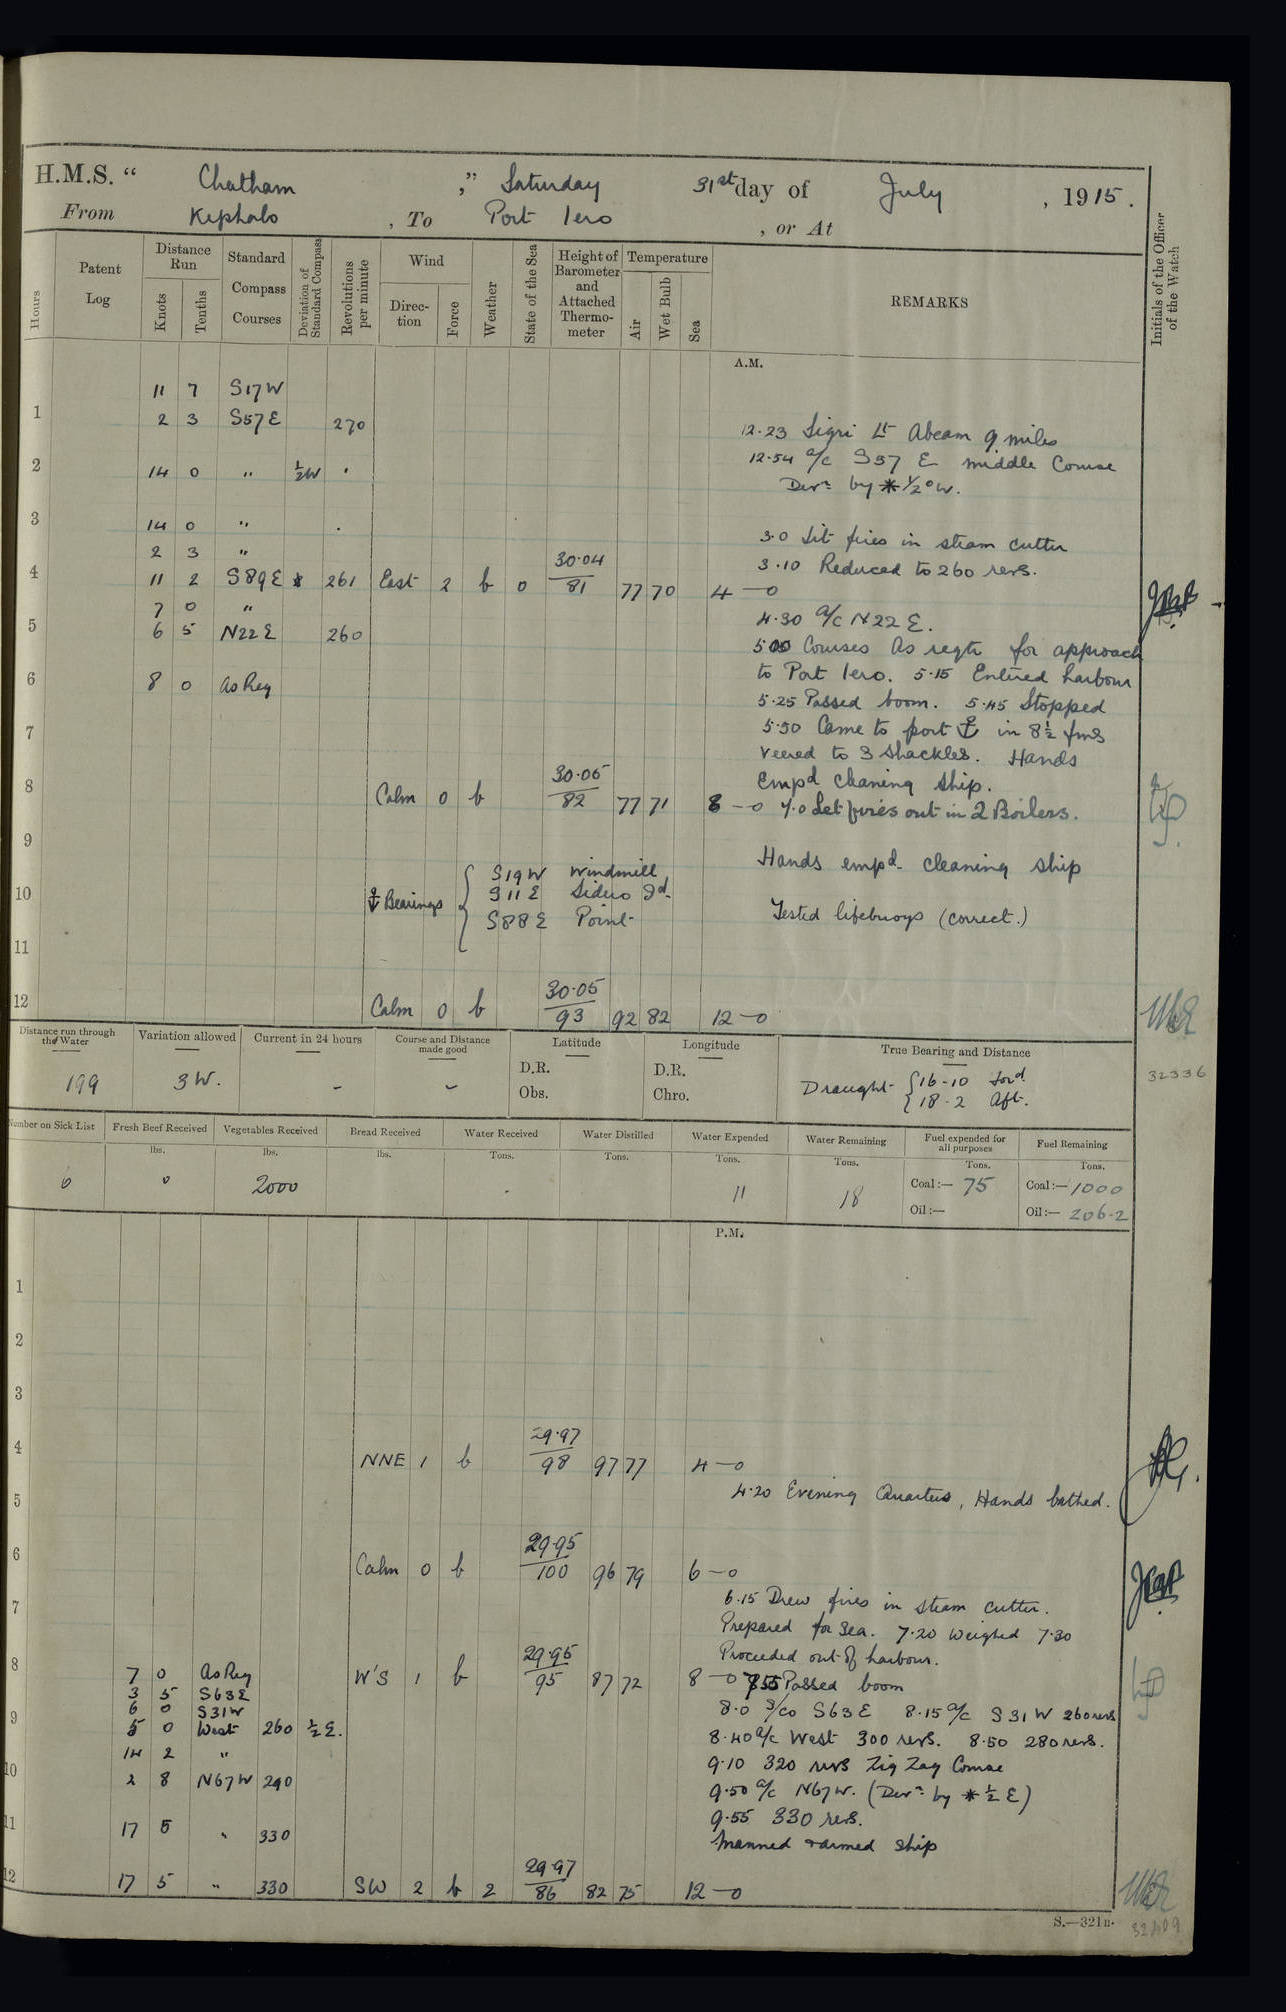 H.M.S. “ Chatham ,” Saturday 31st day of July , 1915.
From Kephalo , To Port Iero , or At
Hours
Patent Log
Distance Run
Knots
Tenths
Standard Compass Courses
Deviation of Standard Compass
Revolutions per minute
Wind
Direction
Force
Weather
State of the Sea
Height of Barometer and Attached Thermometer
Temperature
Air
Wet Bulb
Sea
REMARKS
Initials of the Officer of the Watch
A.M.
11 7 S17W
1 2 3 S57E 270
12.23 Sigri Lt Abeam 9 miles
2 14 0 " ½W "
12.54 a/c S57 E middle Course
Devn by * ½° W.
3 14 0 " "
3.0 Lit fires in steam cutter
2 3 "
3.10 Reduced to 260 revs.
4 11 2 S89E * 261 East 2 b 0 30.04 81 77 70 4 — 0
7 0 "
4.30 a/c N22E.
5 6 5 N22E 260
5.00 Courses As reqte for approach
to Port Iero. 5.15 Entered harbour
6 8 0 As Req
5.25 Passed boom. 5.45 Stopped
7
5.50 Came to port ⚓ in 8½ fms
veered to 3 shackles. Hands
empd cleaning ship.
8 Calm 0 b 30.05 82 77 71 8 — 0 7.0 Let fires out in 2 Boilers.
9
Hands empd cleaning ship
10 ⚓ Bearings { S19W Windmill
S11E Sidero Id.
S88E Point
Tested lifebuoys (correct.)
11
12 Calm 0 b 30.05 93 92 82 12 — 0
Distance run through the Water
199
Variation allowed
3 W.
Current in 24 hours
-
Course and Distance made good
-
Latitude
D.R.
Obs.
Longitude
D.R.
Chro.
True Bearing and Distance
Draught { 16-10 Ford
{ 18-2 Aft.
32336
Number on Sick List
6
Fresh Beef Received
lbs.
0
Vegetables Received
lbs.
2000
Bread Received
lbs.
Water Received
Tons.
Water Distilled
Tons.
Water Expended
Tons.
11
Water Remaining
Tons.
18
Fuel expended for all purposes
Tons.
Coal :— 75
Oil :—
Fuel Remaining
Tons.
Coal :— 1000
Oil :— 206.2
P.M.
1
2
3
4 NNE 1 b 29.97 98 97 77 4 — 0
4.20 Evening Quarters, Hands bathed.
5
6 Calm 0 b 29.95 100 96 79 6 — 0
6.15 Drew fires in steam cutter.
7
Prepared for sea. 7.20 Weighed 7.30
Proceeded out of harbour.
8 7 0 As Req W'S 1 b 29.95 95 87 72 8 — 0 7.55 Passed boom
3 5 S63E
6 0 S31W
8.0 S/Co S63E 8.15 a/c S31W 260 revs
9 5 0 West 260 ½E.
8.40 a/c West 300 revs. 8.50 280 revs.
14 2 "
9.10 320 revs Zig Zag Course
10 2 8 N67W 290
9.50 a/c N67W. (Devn by * ½ E)
9.55 330 revs.
11 17 5 " 330
Manned & armed ship
12 17 5 " 330 SW 2 b 2 29.97 86 82 75 12 — 0
S.—321B.